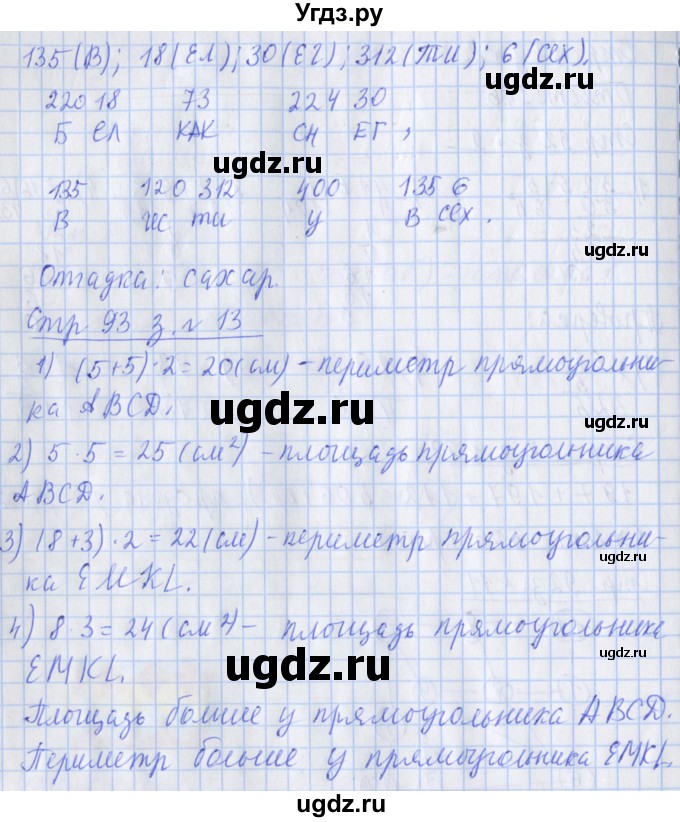 Угдз.ру
135(В); 18(ЕЛ); 30(ЕГ); 312(ТИ); 6(сех).
220 18 73 224 30
Б ЕЛ КАК СН ЕГ,
ugdz.ru ugdz.ru
135 120 312 400 135 6
В ИС ТИ У В СЕХ.
ugdz.ru
Отгадка: сахар.
Стр 93 з. № 13
1) (5+5)·2=20(см) – периметр прямоугольни-
ка ABCD.
ugdz.ru ugdz.ru
2) 5·5=25(см²) – площадь прямоугольника
ABCD.
3) (8+3)·2=22(см) – периметр прямоугольни-
ка EMKL.
ugdz.ru ugdz.ru
4) 8·3=24(см²) – площадь прямоугольника
EMKL.
ugdz.ru ugdz.ru
Площадь больше у прямоугольника ABCD.
Периметр больше у прямоугольника EMKL.
ugdz.ru